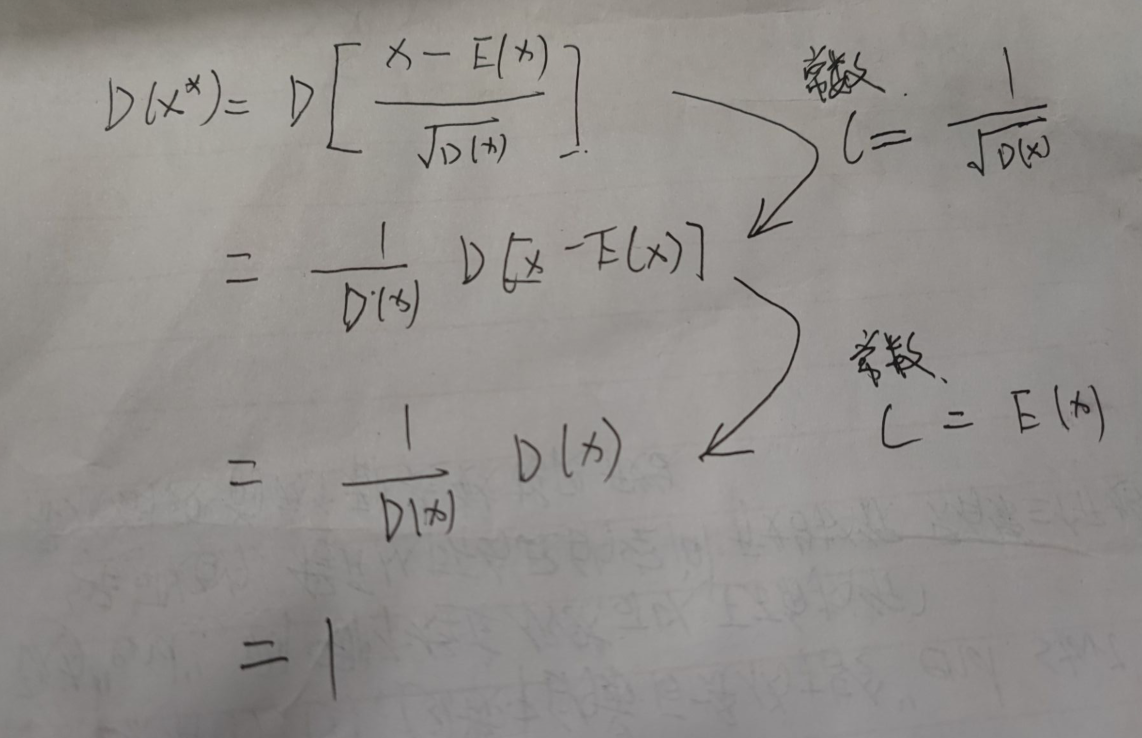 D(x*) = D[(x - E(x))/√D(x)]
常数. C = 1/√D(x)
= 1/D(x) D[x - E(x)]
常数、 C = E(x)
= 1/D(x) D(x)
= 1